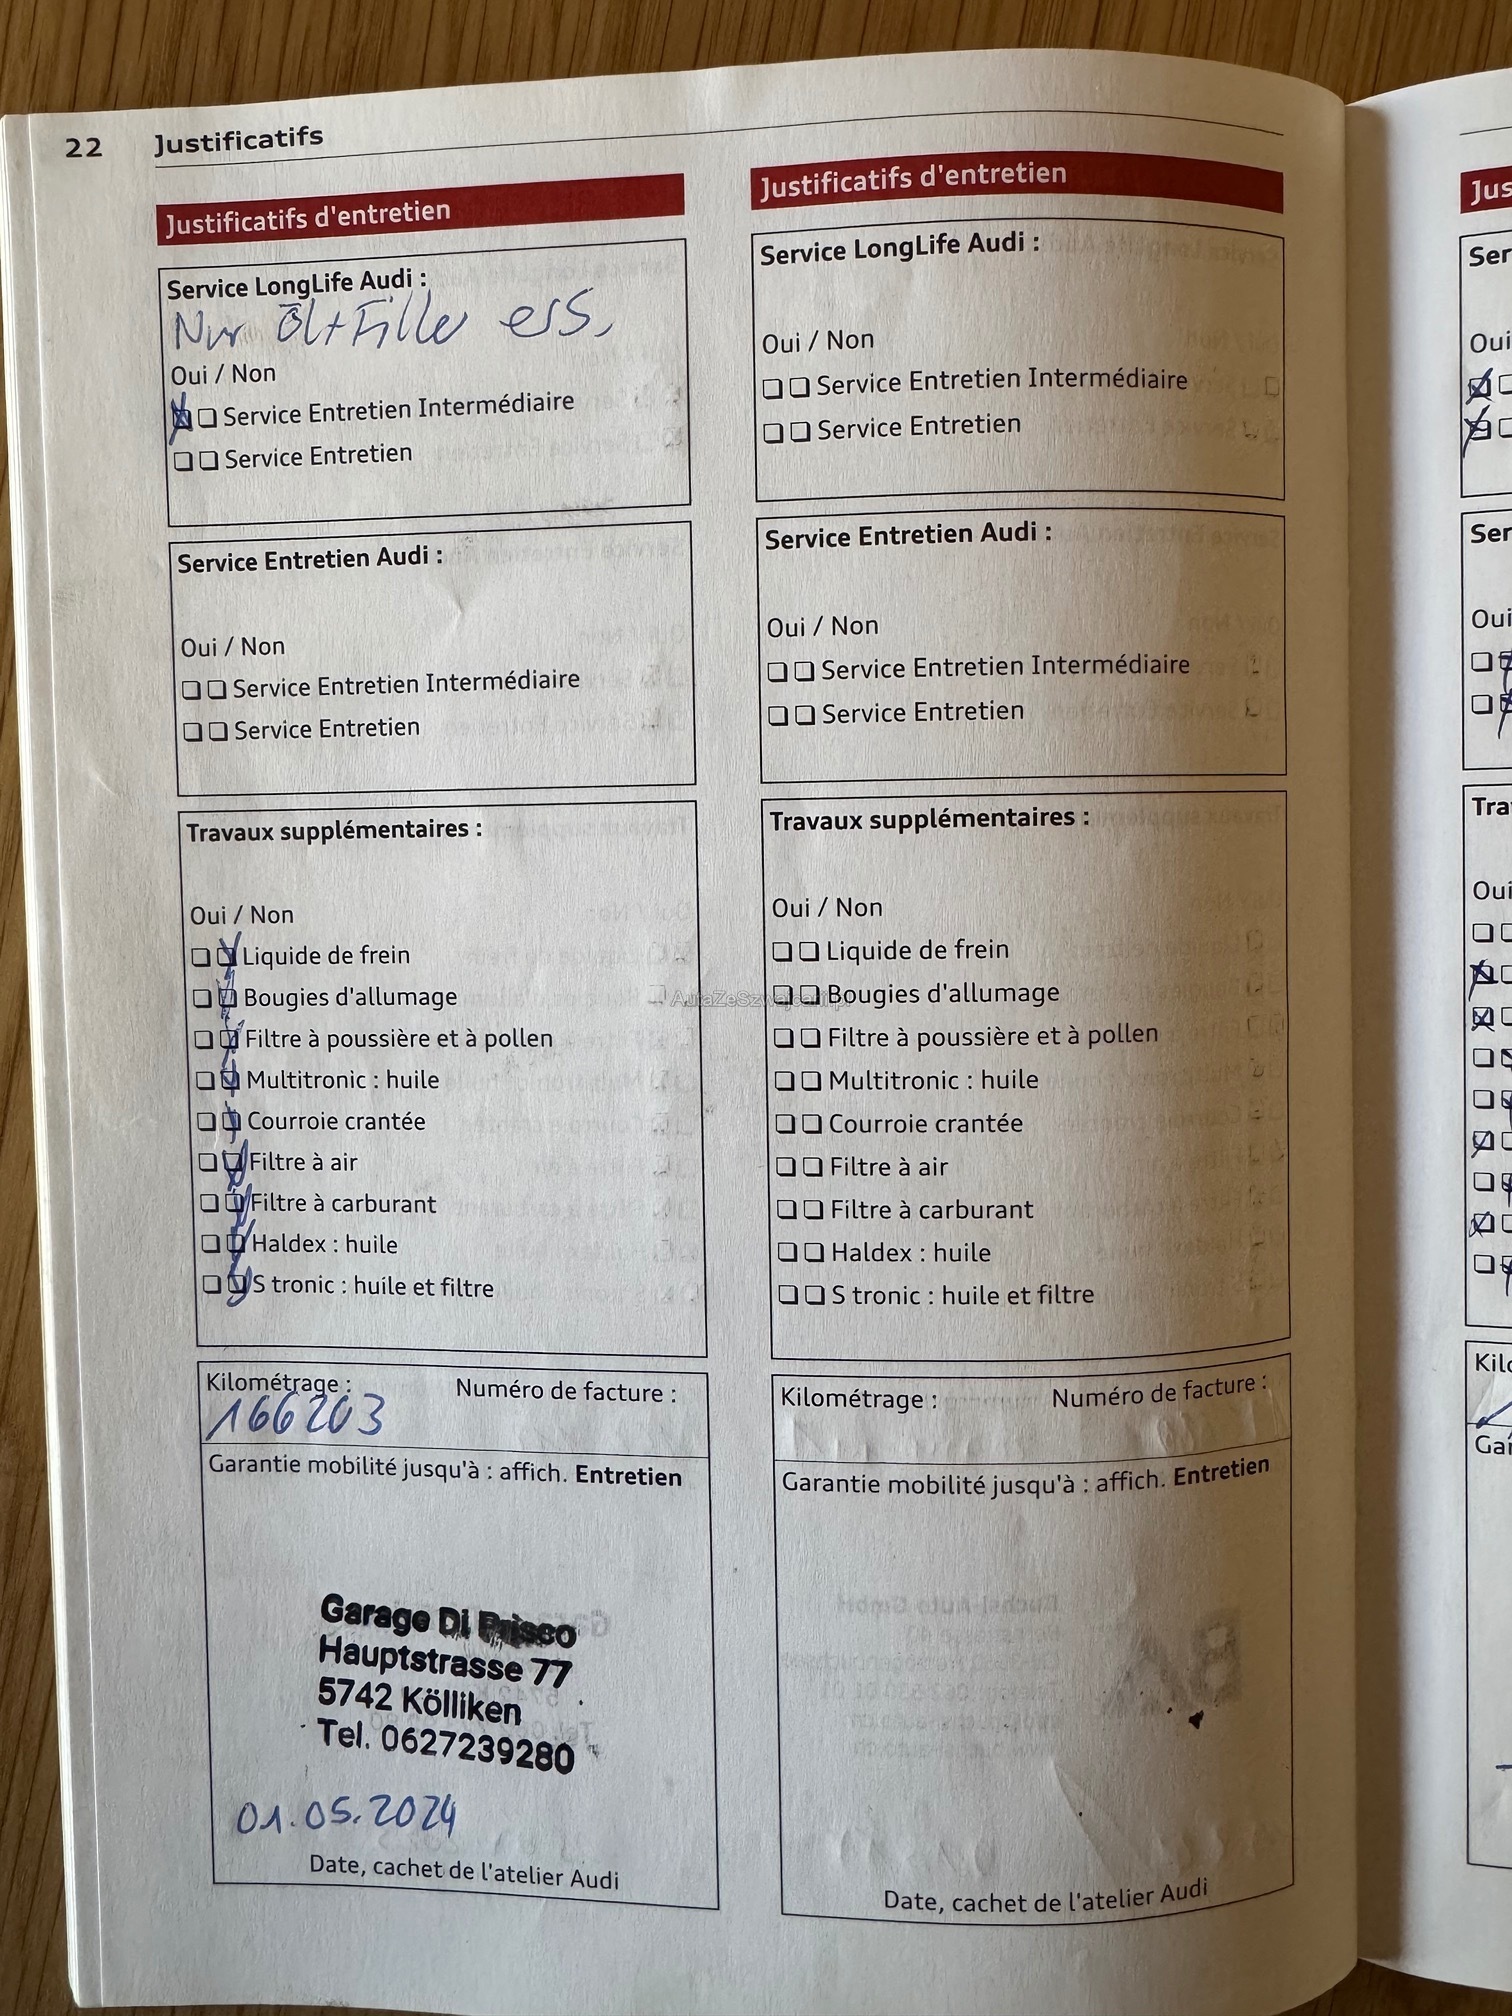 22 Justificatifs
Justificatifs d'entretien
Service LongLife Audi :
Nur Öl+Filter ers.
Oui / Non
Service Entretien Intermédiaire
Service Entretien
Service Entretien Audi :
Oui / Non
Service Entretien Intermédiaire
Service Entretien
Travaux supplémentaires :
Oui / Non
Liquide de frein
Bougies d'allumage
Filtre à poussière et à pollen
Multitronic : huile
Courroie crantée
Filtre à air
Filtre à carburant
Haldex : huile
S tronic : huile et filtre
Kilométrage : Numéro de facture :
166203
Garantie mobilité jusqu'à : affich. Entretien
Garage Di Prisco
Hauptstrasse 77
5742 Kölliken
Tel. 0627239280
01.05.2024
Date, cachet de l'atelier Audi
Justificatifs d'entretien
Service LongLife Audi :
Oui / Non
Service Entretien Intermédiaire
Service Entretien
Service Entretien Audi :
Oui / Non
Service Entretien Intermédiaire
Service Entretien
Travaux supplémentaires :
Oui / Non
Liquide de frein
Bougies d'allumage
Filtre à poussière et à pollen
Multitronic : huile
Courroie crantée
Filtre à air
Filtre à carburant
Haldex : huile
S tronic : huile et filtre
Kilométrage : Numéro de facture :
Garantie mobilité jusqu'à : affich. Entretien
Date, cachet de l'atelier Audi
AutaZeSzwajcarii.pl
Jus
Ser
Oui
Ser
Oui
Tra
Oui
Kilo
Gar